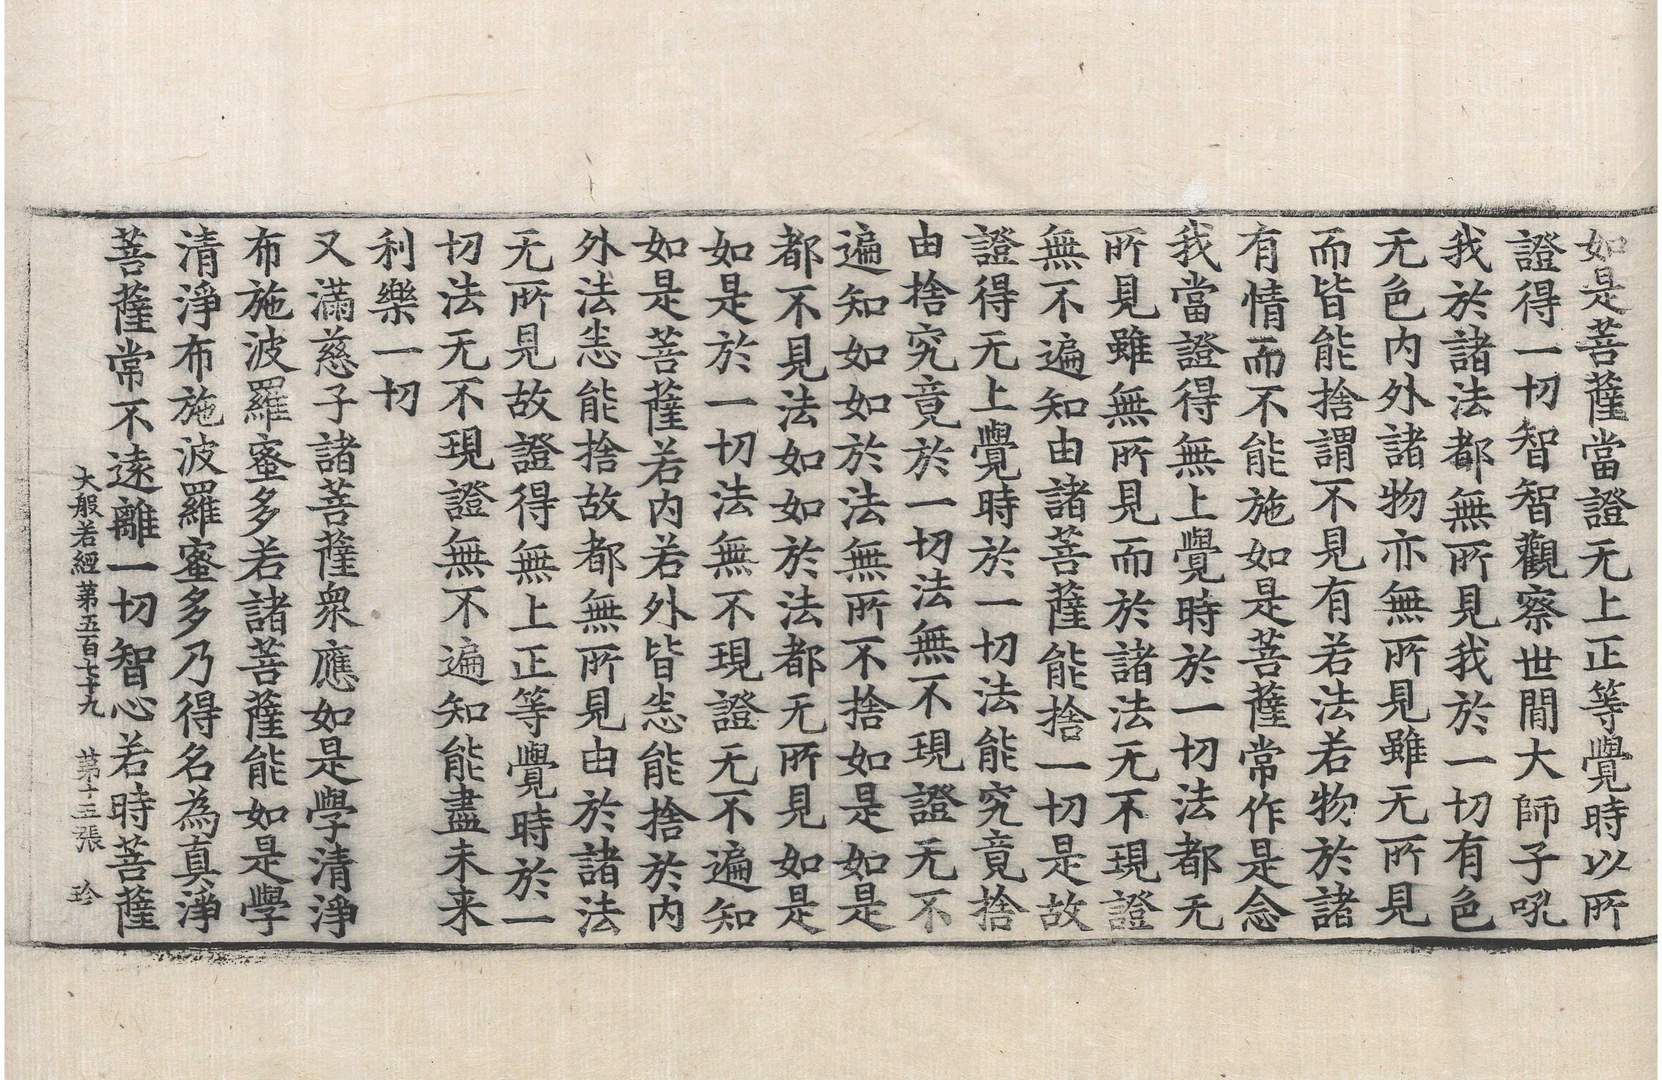 如是菩薩當證无上正等覺時以所
證得一切智智觀察世間大師子吼
我於諸法都無所見我於一切有色
无色內外諸物亦無所見雖无所見
而皆能捨謂不見有若法若物於諸
有情而不能施如是菩薩常作是念
我當證得無上覺時於一切法都无
所見雖無所見而於諸法无不現證
無不遍知由諸菩薩能捨一切是故
證得无上覺時於一切法能究竟捨
由捨究竟於一切法無不現證无不
遍知如如於法無所不捨如是如是
都不見法如如於法都无所見如是
如是於一切法無不現證无不遍知
如是菩薩若內若外皆悉能捨於內
外法悉能捨故都無所見由於諸法
无所見故證得無上正等覺時於一
切法无不現證無不遍知能盡未来
利樂一切
又滿慈子諸菩薩衆應如是學清淨
布施波羅蜜多若諸菩薩能如是學
清淨布施波羅蜜多乃得名為真淨
菩薩常不遠離一切智心若時菩薩
大般若經第五百七十九 第十三張 珎